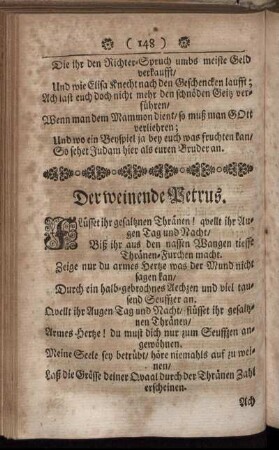 ( 148 )
Die ihr den Richter-Spruch umbs meiste Geld
verkaufft/
Und wie Elisa Knecht nach den Geschencken laufft;
Ach last euch doch nicht mehr den schnöden Geitz ver-
führen/
Wenn man dem Mammon dient/ so muß man GOtt
verliehren;
Und wo ein Beyspiel ja bey euch was fruchten kan/
So sehet Judam hier als euren Bruder an.
Der weinende Petrus.
Flüsset ihr gesaltznen Thränen! qvellt ihr Au-
gen Tag und Nacht/
Biß ihr aus den nassen Wangen tieffe
Thränen-Furchen macht.
Zeige nur du armes Hertze was der Mund nicht
sagen kan/
Durch ein halb-gebrochnes Aechzen und viel tau-
send Seuffzer an.
Qvellt ihr Augen Tag und Nacht/ flüsset ihr gesaltz-
nen Thränen/
Armes-Hertze! du must dich nur zum Seuffzen an-
gewöhnen.
Meine Seele sey betrübt/ höre niemahls auf zu wei-
nen/
Laß die Grösse deiner Qvaal durch der Thränen Zahl
erscheinen.
Ach